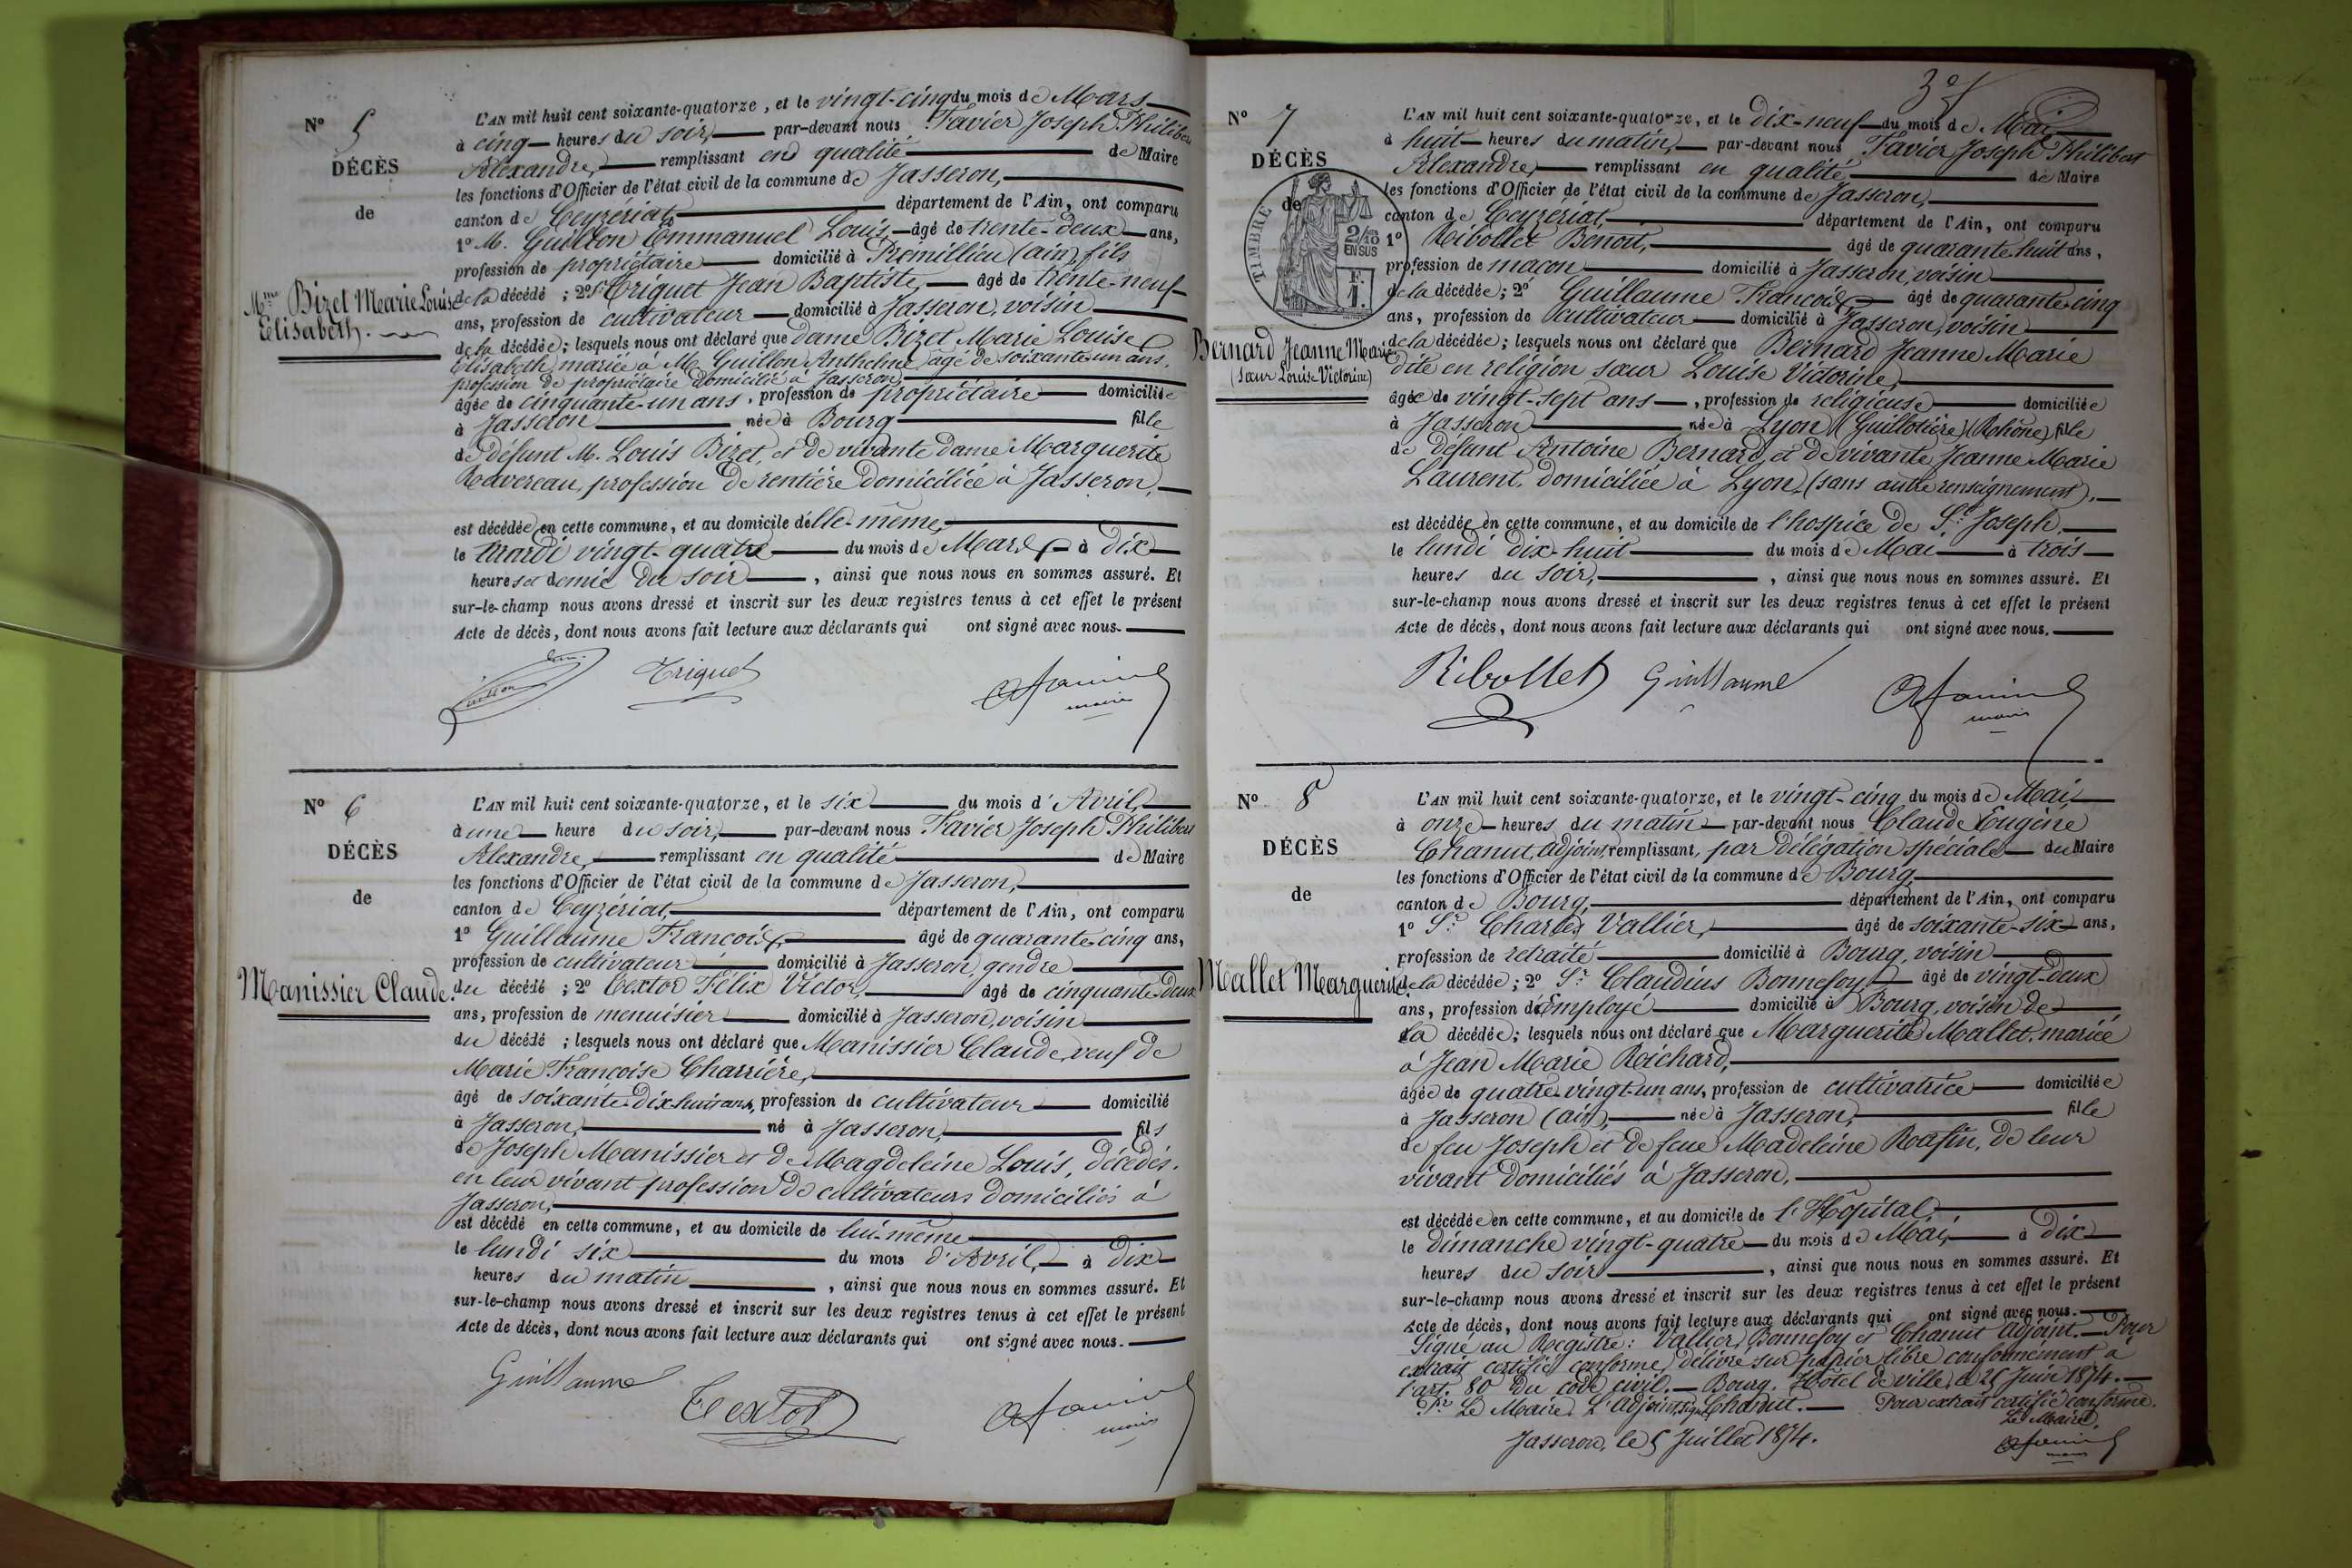 N° 5
DÉCÈS
de
Mme Bizet Marie Louise
Elisabeth.
L'AN mil huit cent soixante-quatorze, et le vingt-cinq du mois de Mars
à cinq heures du soir, par-devant nous Favier Joseph Philibert
Alexandre, remplissant en qualité de Maire
les fonctions d'Officier de l'état civil de la commune de Jasseron,
canton de Ceyzériat, département de l'Ain, ont comparu
1° M. Guillon Emmanuel Louis âgé de trente-deux ans,
profession de propriétaire domicilié à Prémillieu (ain) fils
de la décédé ; 2° Sr Triquet Jean Baptiste, âgé de trente-neuf
ans, profession de cultivateur domicilié à Jasseron, voisin
de la décédée ; lesquels nous ont déclaré que dame Bizet Marie Louise
Elisabeth, mariée à M. Guillon Anthelme, âgé de soixante-un ans,
profession de propriétaire domicilié à Jasseron,
âgée de cinquante-un ans, profession de propriétaire domiciliée
à Jasseron née à Bourg fille
de défunt M. Louis Bizet, et de vivante dame Marguerite
Ravereau, profession de rentière domiciliée à Jasseron,
est décédée en cette commune, et au domicile d'elle-même,
le mardi vingt-quatre du mois de Mars à dix
heures et demie du soir, ainsi que nous nous en sommes assuré. Et
sur-le-champ nous avons dressé et inscrit sur les deux registres tenus à cet effet le présent
Acte de décès, dont nous avons fait lecture aux déclarants qui ont signé avec nous.
Guillon Triquet Afavier
maire
N° 6
DÉCÈS
de
Manissier Claude.
L'AN mil huit cent soixante-quatorze, et le six du mois d'Avril,
à une heure du soir, par-devant nous Favier Joseph Philibert
Alexandre, remplissant en qualité de Maire
les fonctions d'Officier de l'état civil de la commune de Jasseron,
canton de Ceyzériat, département de l'Ain, ont comparu
1° Guillaume François, âgé de quarante-cinq ans,
profession de cultivateur domicilié à Jasseron, gendre
du décédé ; 2° Textor Félix Victor, âgé de cinquante-deux
ans, profession de menuisier domicilié à Jasseron, voisin
du décédé ; lesquels nous ont déclaré que Manissier Claude, veuf de
Marie Françoise Charrière,
âgé de soixante-dix-huit ans, profession de cultivateur domicilié
à Jasseron, né à Jasseron, fils
de Joseph Manissier et de Magdeleine Louis, décédés,
en leur vivant profession de cultivateurs domiciliés à
Jasseron,
est décédé en cette commune, et au domicile de lui-même
le lundi six du mois d'Avril, à dix
heures du matin, ainsi que nous nous en sommes assuré. Et
sur-le-champ nous avons dressé et inscrit sur les deux registres tenus à cet effet le présent
Acte de décès, dont nous avons fait lecture aux déclarants qui ont signé avec nous.
Guillaume Textor Afavier
maire
N° 7
DÉCÈS
de
TIMBRE
2/10
EN SUS
F.
1.
Bernard Jeanne Marie
(Sœur Louise Victorine)
L'AN mil huit cent soixante-quatorze, et le dix-neuf du mois de Mai,
à huit heures du matin, par-devant nous Favier Joseph Philibert
Alexandre, remplissant en qualité de Maire
les fonctions d'Officier de l'état civil de la commune de Jasseron,
canton de Ceyzériat, département de l'Ain, ont comparu
1° Ribollet Benoit, âgé de quarante-huit ans,
profession de maçon domicilié à Jasseron, voisin
de la décédée ; 2° Guillaume François âgé de quarante-cinq
ans, profession de cultivateur domicilié à Jasseron, voisin
de la décédée ; lesquels nous ont déclaré que Bernard Jeanne Marie
dite en religion sœur Louise Victorine,
âgée de vingt-sept ans, profession de religieuse domiciliée
à Jasseron née à Lyon (Guillotière) (Rhône) fille
de défunt Antoine Bernard, et de vivante Jeanne Marie
Laurent, domiciliée à Lyon, (sans autre renseignement).
est décédée en cette commune, et au domicile de l'hospice de St Joseph
le lundi dix-huit du mois de Mai à trois
heures du soir, ainsi que nous nous en sommes assuré. Et
sur-le-champ nous avons dressé et inscrit sur les deux registres tenus à cet effet le présent
Acte de décès, dont nous avons fait lecture aux déclarants qui ont signé avec nous.
Ribollet Guillaume Afavier
maire
N° 8
DÉCÈS
de
Mallet Marguerite.
L'AN mil huit cent soixante-quatorze, et le vingt-cinq du mois de Mai,
à onze heures du matin par-devant nous Claude Eugène
Chanut, adjoint, remplissant, par délégation spéciale du Maire
les fonctions d'Officier de l'état civil de la commune de Bourg,
canton de Bourg, département de l'Ain, ont comparu
1° Sr Charles Vallier, âgé de soixante-six ans,
profession de retraité domicilié à Bourg, voisin
de la décédée ; 2° Sr Claudius Bonnefoy âgé de vingt-deux
ans, profession d'employé domicilié à Bourg, voisin de
la décédée ; lesquels nous ont déclaré que Marguerite Mallet, mariée
à Jean Marie Reichard,
âgée de quatre-vingt-un ans, profession de cultivatrice domiciliée
à Jasseron (ain), née à Jasseron, fille
de feu Joseph et de feue Madeleine Roafin, de leur
vivant domiciliés à Jasseron,
est décédée en cette commune, et au domicile de l'Hôpital
le dimanche vingt-quatre du mois de Mai, à dix
heures du soir, ainsi que nous nous en sommes assuré. Et
sur-le-champ nous avons dressé et inscrit sur les deux registres tenus à cet effet le présent
Acte de décès, dont nous avons fait lecture aux déclarants qui ont signé avec nous.
Signé au Registre : Vallier, Bonnefoy et Chanut adjoint. Pour
extrait certifié conforme, délivré sur papier libre conformément à
l'art. 80 du code civil. Bourg. Hôtel de ville, le 25 Juin 1874.
Pr Le Maire, L'adjoint, signé Chanut. Pour extrait certifié conforme.
Le Maire,
Jasseron, le 5 Juillet 1874. Afavier
maire